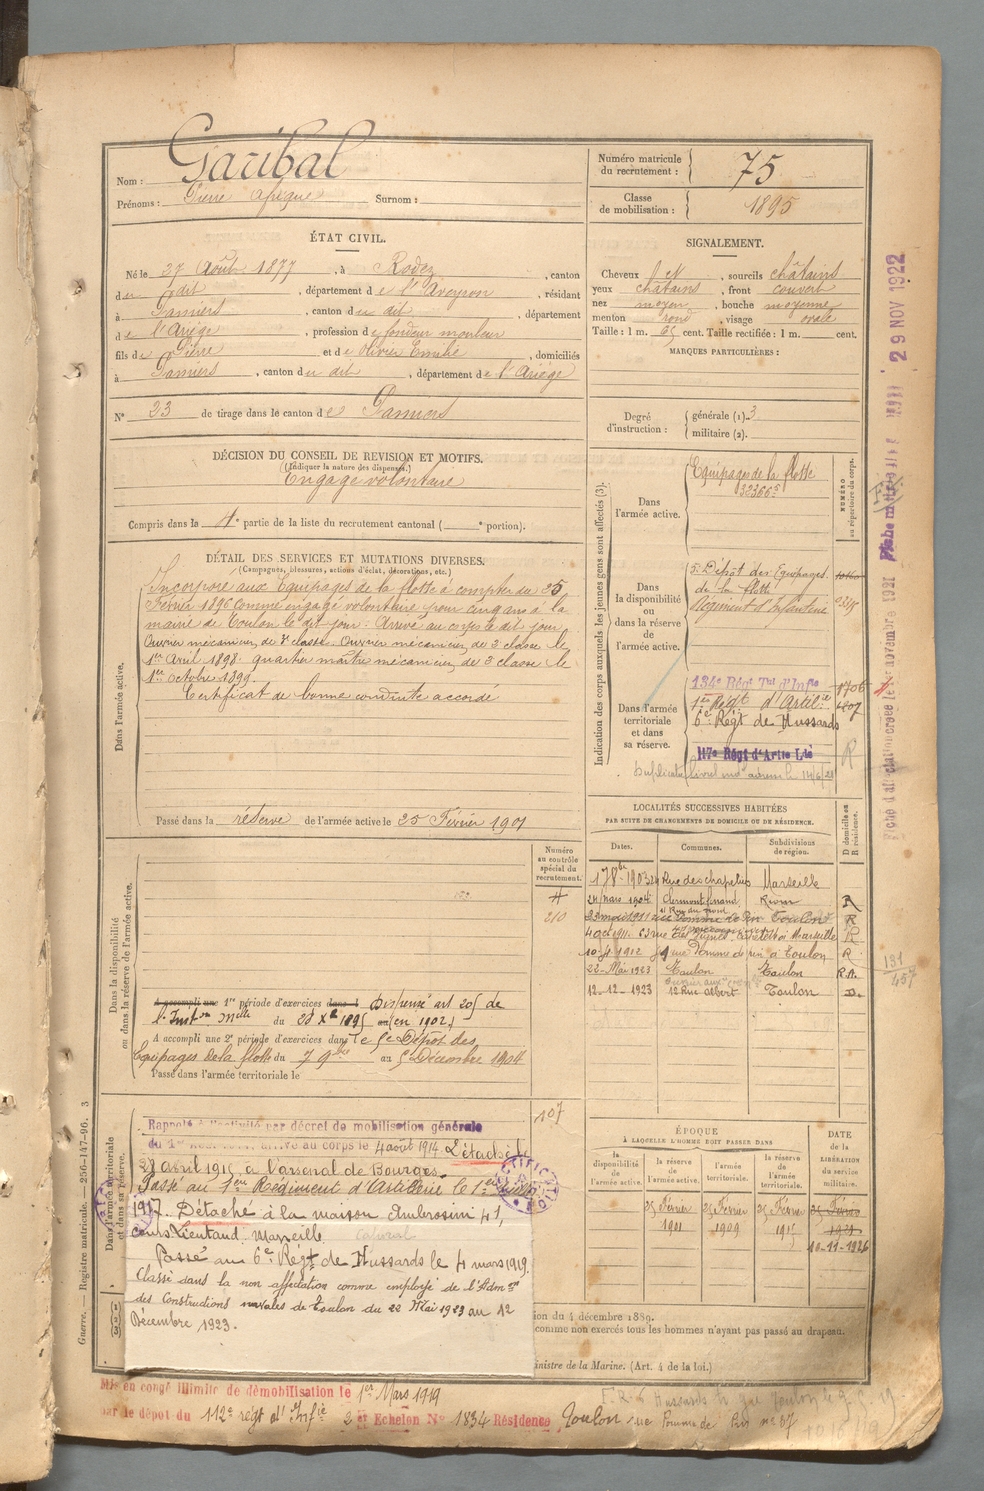 Garibal
Nom :
Prénoms : Pierre Surnom :
Numéro matricule
du recrutement : 75
Classe
de mobilisation : 1895
ÉTAT CIVIL.
Né le 27 Août 1877, à Rodez, canton
du dit, département de l'Aveyron, résidant
à Pamiers, canton du dit, département
de l'Ariège, profession de fondeur mouleur
fils de Pierre et de Olivier Emilie, domiciliés
à Pamiers, canton du dit, département de l'Ariège
N° 23 de tirage dans le canton de Pamiers
SIGNALEMENT.
Cheveux et sourcils châtains
yeux châtains, front couvert
nez moyen, bouche moyenne
menton rond, visage ovale
Taille : 1 m. 65 cent. Taille rectifiée : 1 m. cent.
MARQUES PARTICULIÈRES :
Degré
d'instruction :
générale (1). 3
militaire (2).
DÉCISION DU CONSEIL DE REVISION ET MOTIFS.
(Indiquer la nature des dispenses.)
Engagé volontaire
Compris dans la 4e partie de la liste du recrutement cantonal ( e portion).
DÉTAIL DES SERVICES ET MUTATIONS DIVERSES.
(Campagnes, blessures, actions d'éclat, décorations, etc.)
Dans l'armée active.
Incorporé aux Equipages de la flotte à compter du 25
Février 1896 comme engagé volontaire pour cinq ans à la
mairie de Toulon le dit jour. Arrivé au corps le dit jour
Ouvrier mécanicien de 3e classe. Ouvrier mécanicien de 2e classe le
1er Avril 1898. quartier maître mécanicien de 3 classe le
1er Octobre 1899.
Certificat de bonne conduite accordé
Passé dans la réserve de l'armée active le 25 Février 1901
Indication des corps auxquels les jeunes gens sont affectés (3).
NUMÉRO
au répertoire du corps.
Dans
l'armée active.
Equipages de la flotte
Dans
la disponibilité
ou
dans la réserve
de
l'armée active.
5e Dépôt des Equipages
de la flotte
Régiment d'Infanterie
Dans l'armée
territoriale
et dans
sa réserve.
134e Régt Tal d'Infie
1706
1er Régt d'Artil.ie
1807
6e Régt de Hussards
117e Régt d'Artie Lde
R
29 NOV 1922
LOCALITÉS SUCCESSIVES HABITÉES
PAR SUITE DE CHANGEMENTS DE DOMICILE OU DE RÉSIDENCE.
Dates. Communes. Subdivisions
de région.
D domicile ou
R résidence.
1 7bre 1903 24 Rue des chapeliers Marseille
24 mars 1904 Clermont ferrand Riom R
10-4-1912 rue Pomme de pin à Toulon R
22-Mai 1923 Toulon Toulon R.A.
12-12-1923 12 Rue Albert Toulon D.
131
457
Numéro
au contrôle
spécial du
recrutement.
210
Dans la disponibilité
ou dans la réserve de l'armée active.
A accompli une 1re période d'exercices dans l Dispensé art 205 de
l'Inston Melle du 28 Xbre 1895 (en 1902.)
A accompli une 2e période d'exercices dans le 5e Dépôt des
Equipages de la flotte du 7 9bre au 5 Décembre 1904
Passé dans l'armée territoriale le
107
Dans l'armée territoriale
et dans sa réserve.
Rappelé à l'activité par décret de mobilisation générale
arrivé au corps le 4 août 1914. Détaché le
29 avril 1915, à l'arsenal de Bourges.
Passé au 1er Régiment d'Artillerie le 1er
1917. Détaché à la maison Ambrosini 41,
cours Lieutaud. Marseille.
Passé au 6e Régt de Hussards le 4 mars 1919.
Classé dans la non affectation comme employé de l'Admon
des Constructions navales de Toulon du 22 Mai 1923 au 12
Décembre 1923.
ÉPOQUE
À LAQUELLE L'HOMME DOIT PASSER DANS
DATE
de la
LIBÉRATION
du service
militaire.
la
disponibilité
de
l'armée active.
la réserve
de
l'armée active.
l'armée
territoriale.
la réserve
de
l'armée
territoriale.
25 Février 25 Février 25 Février 25 Février
1901 1909 1915
10-11-1926
ion du 4 décembre 1889.
comme non exercés tous les hommes n'ayant pas passé au drapeau.
inistre de la Marine. (Art. 4 de la loi.)
Guerre. — Registre matricule. — 256-147-96. 3
Mis en congé illimité de démobilisation le 1er Mars 1919
par le dépôt du 112e régt d'Infie 2 et Echelon N° 1834 Résidence Toulon rue Pomme de Pin n° 37